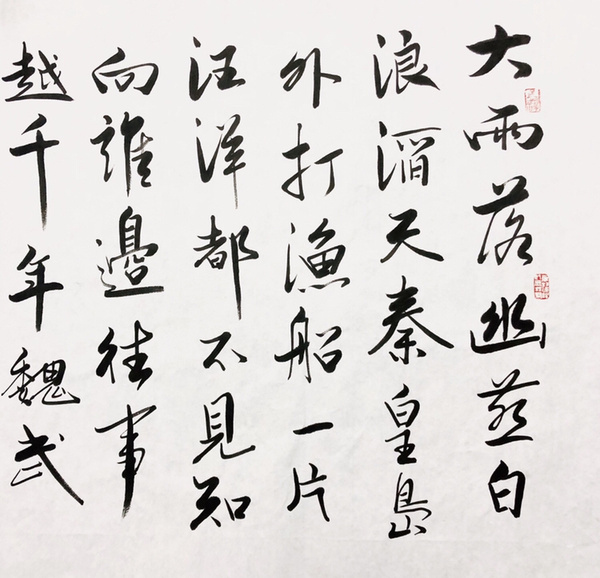 大雨落幽燕白
浪滔天秦皇島
外打漁船一片
汪洋都不見知
向誰邊往事
越千年魏武